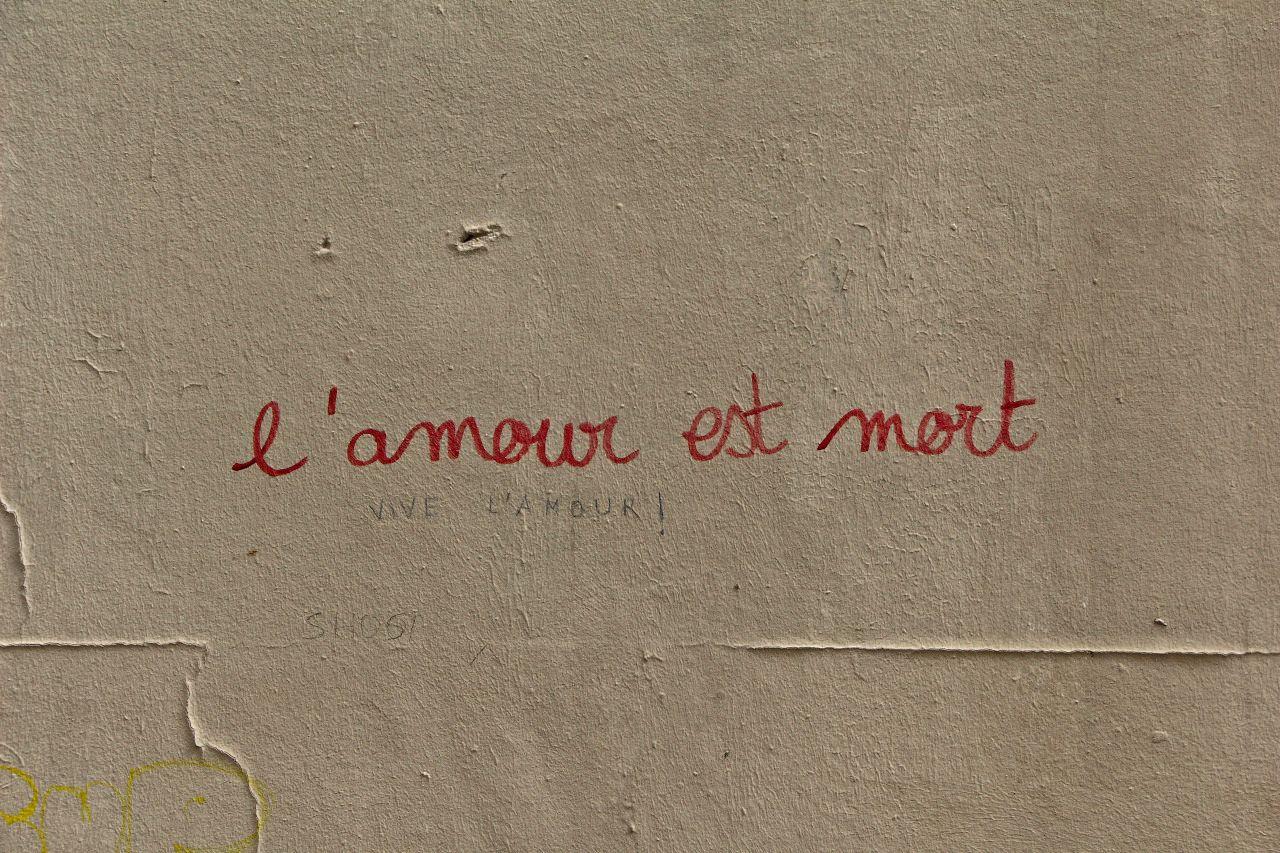 l'amour est mort
VIVE L'AMOUR!